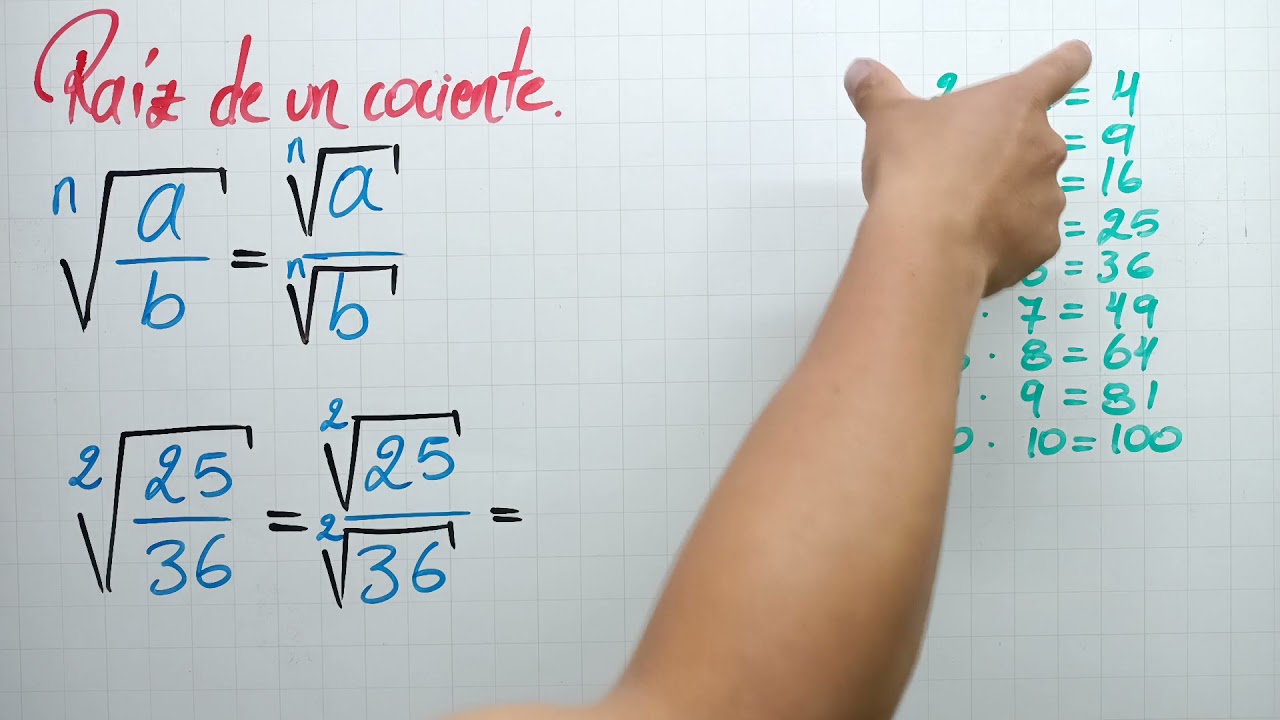 Raíz de un cociente.
n√(a/b) = n√a / n√b
2√(25/36) = 2√25 / 2√36 =
2 = 4
= 9
= 16
= 25
6 = 36
· 7 = 49
· 8 = 64
· 9 = 81
· 10 = 100